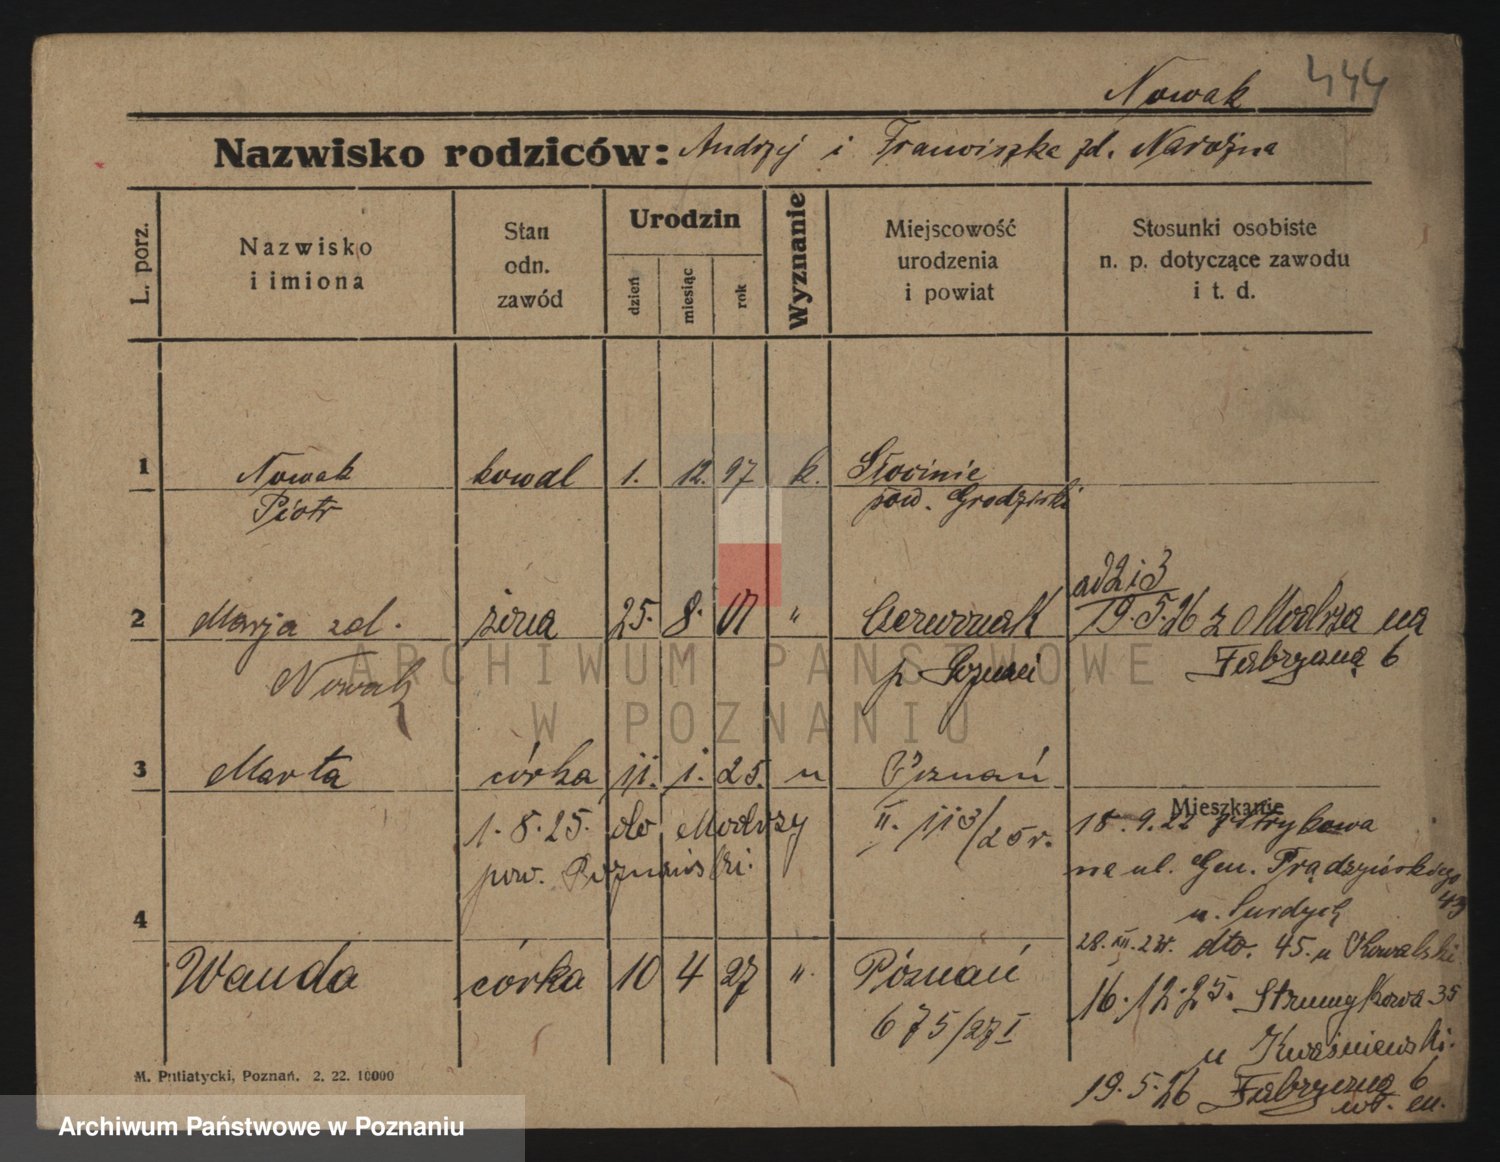 Nowak 444
Nazwisko rodziców: Andrzej i Franciszka zd. Narożna
L. porz.
Nazwisko
i imiona
Stan
odn.
zawód
Urodzin
dzień
miesiąc
rok
Wyznanie
Miejscowość
urodzenia
i powiat
Stosunki osobiste
n. p. dotyczące zawodu
i t. d.
1 Nowak kowal 1. 12. 97 k. Słocinie
Piotr pow. Grodziski
ad 2 i 3
2 Marja zd. żona 25. 8. 01 " Czerwonak 19.5.26 z Modrza na
Nowak p. Poznań Fabryczną 6
3 Marta córka 11. 1. 25. " Poznań
1.8.25. do Modrzy II. 113/25 r.
pow. Poznański.
Mieszkanie
18.9.22 Strykowa
na ul. Gen. Prądzyńskiego 43
u. Surdych
28.XII.24. dto. 45. u Kowalski
4
Wanda córka 10 4 27 " Poznań
675/27 I
16.12.25. Strumykowa 35
u Kwaśniewski.
19.5.26 Fabryczną 6
M. Putiatycki, Poznań. 2. 22. 10000
ARCHIWUM PAŃSTWOWE
W POZNANIU
Archiwum Państwowe w Poznaniu